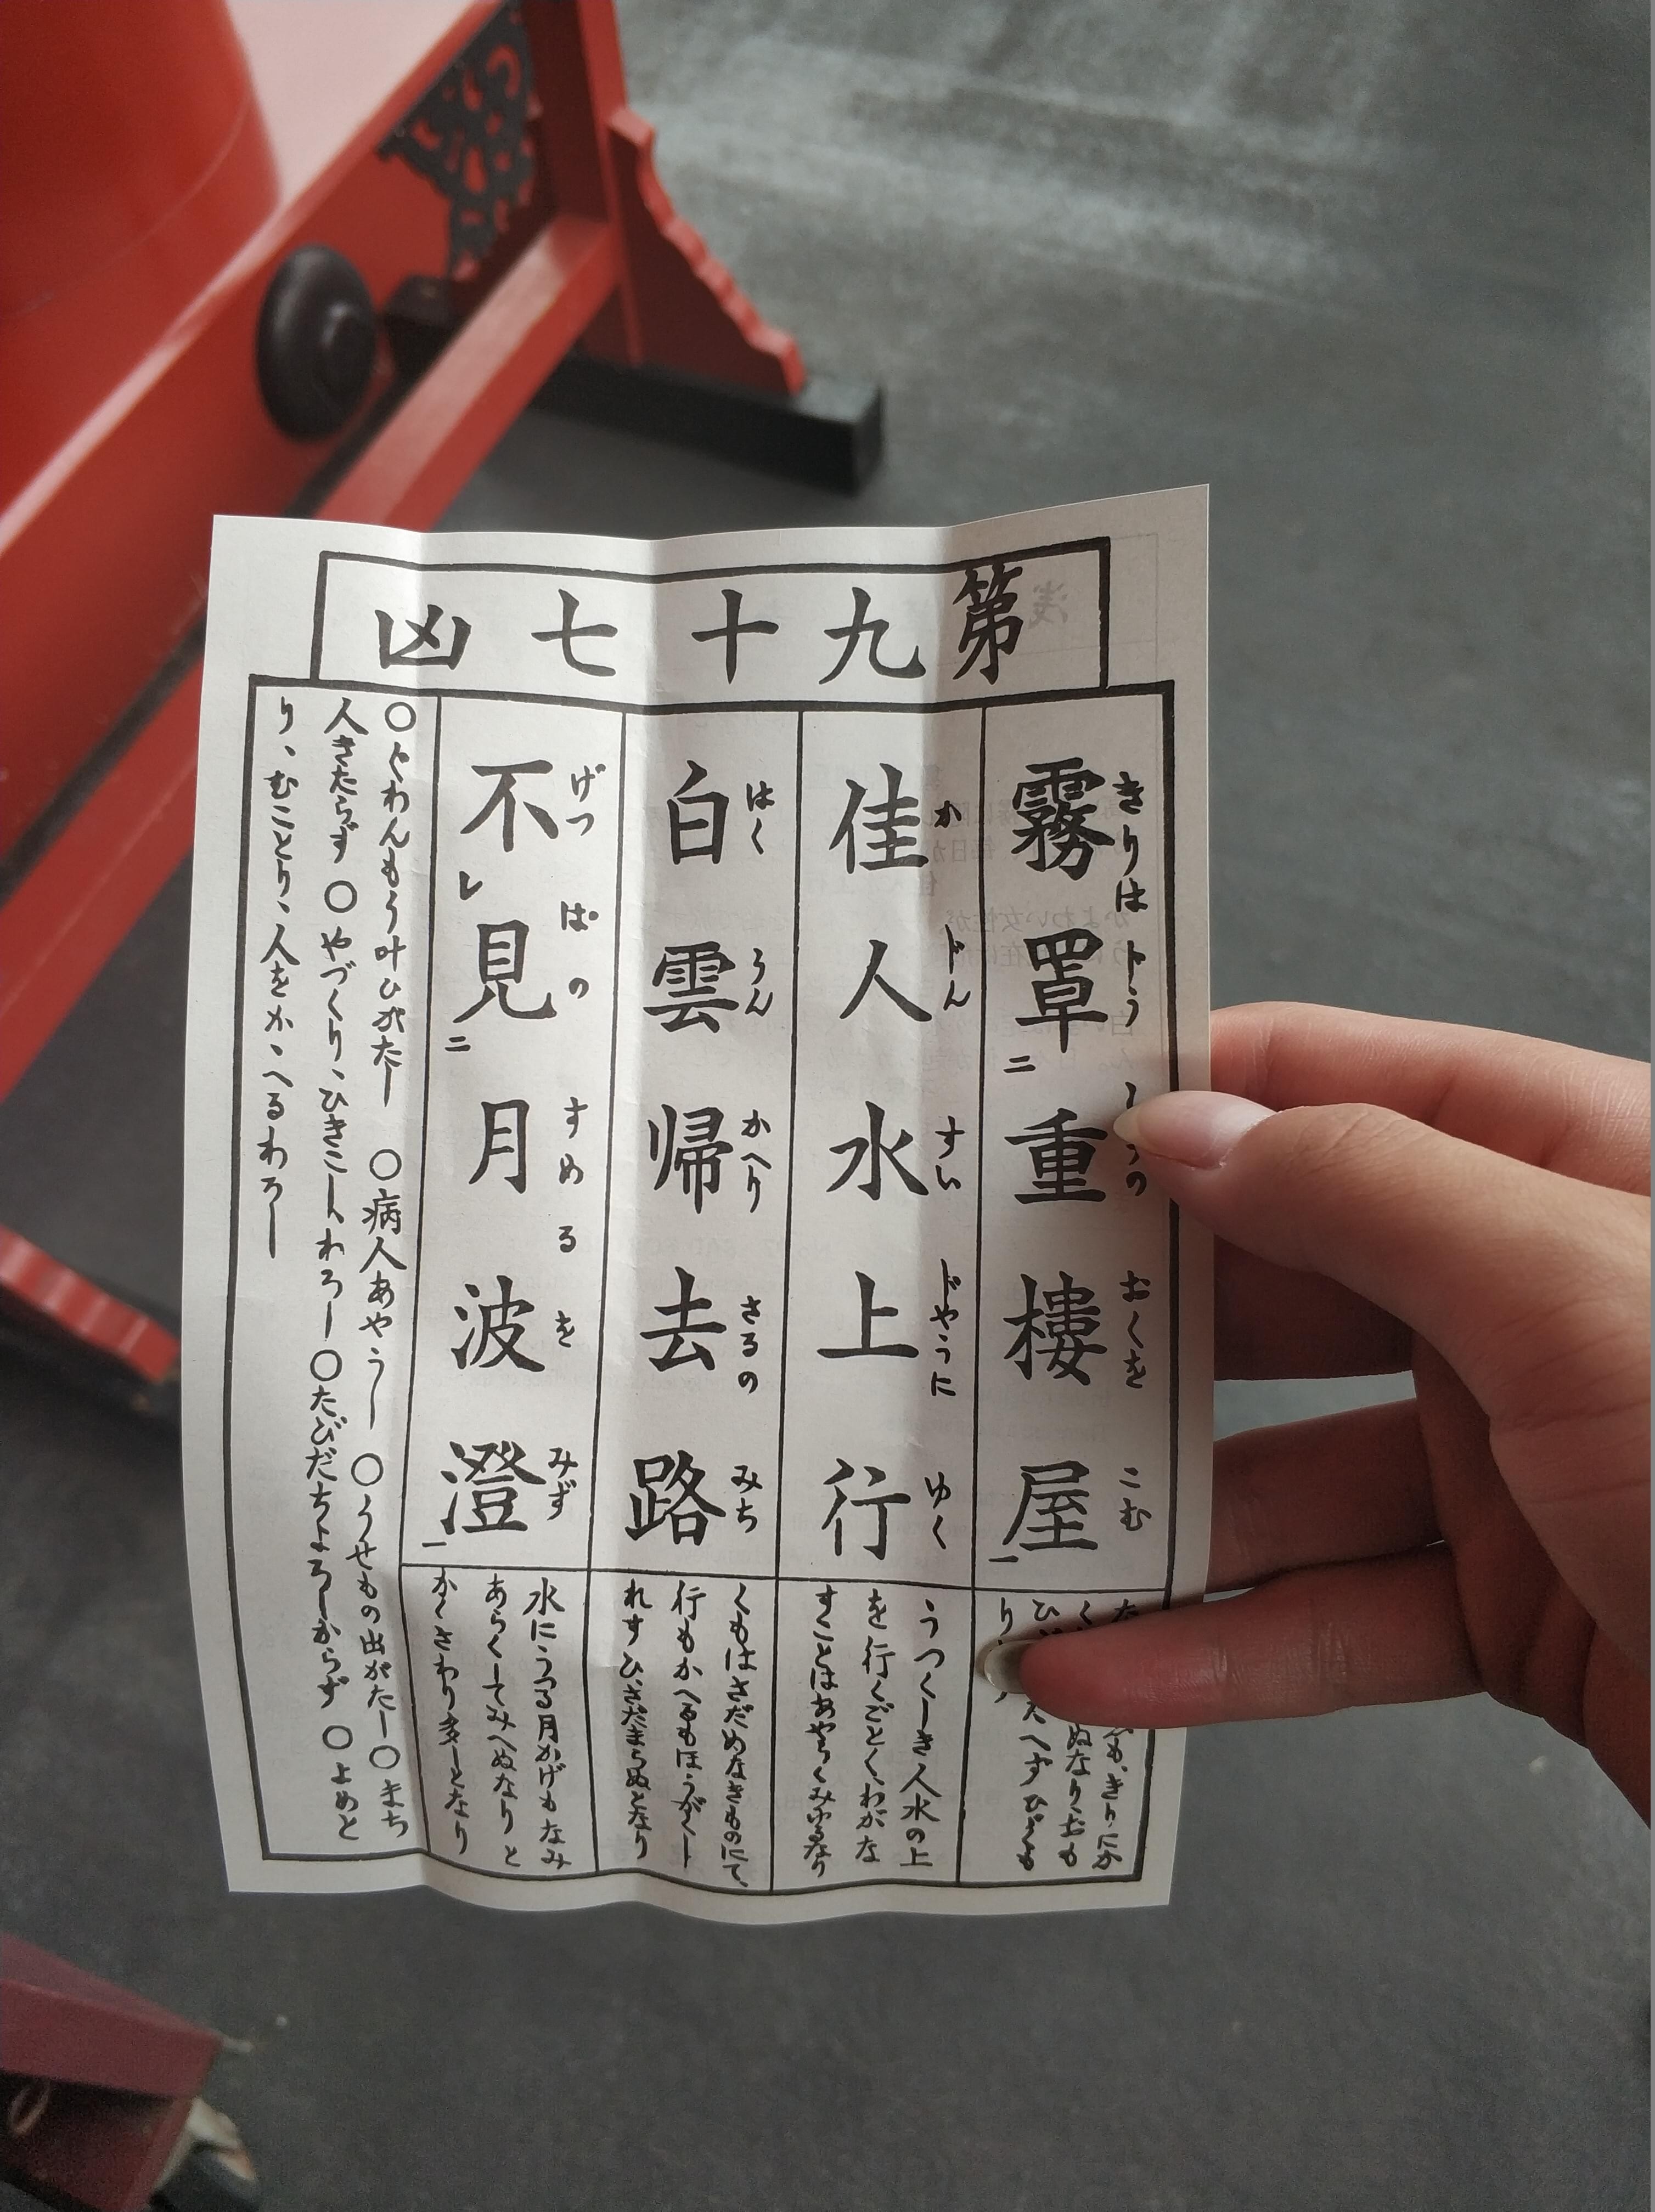 第九十七凶
霧罩重楼屋
きりは トう の おくを こむ
二 一
佳人水上行
か ドん すい ドやうに ゆく
白雲帰去路
はく うん かへり さるの みち
不見月波澄
げつ ぱの すめるを みず
レ 二 一
うつくしき人水の上
を行くごとく、わがな
すことはあやうくみゆるなり
くもはさだめなきものにて、
行もかへるもほうがくし
れすひ、さだまらぬとなり
水にうつる月かげもなみ
あらくしてみへぬなりと
かくさわり多しとなり
○ぐわんもう叶ひがたし ○病人あやうし ○うせもの出がたし○まち
人きたらず ○やづくり、ひきこしわろし ○たびだちよろしからず ○よめと
り、むことり、人をかゝへるわろし